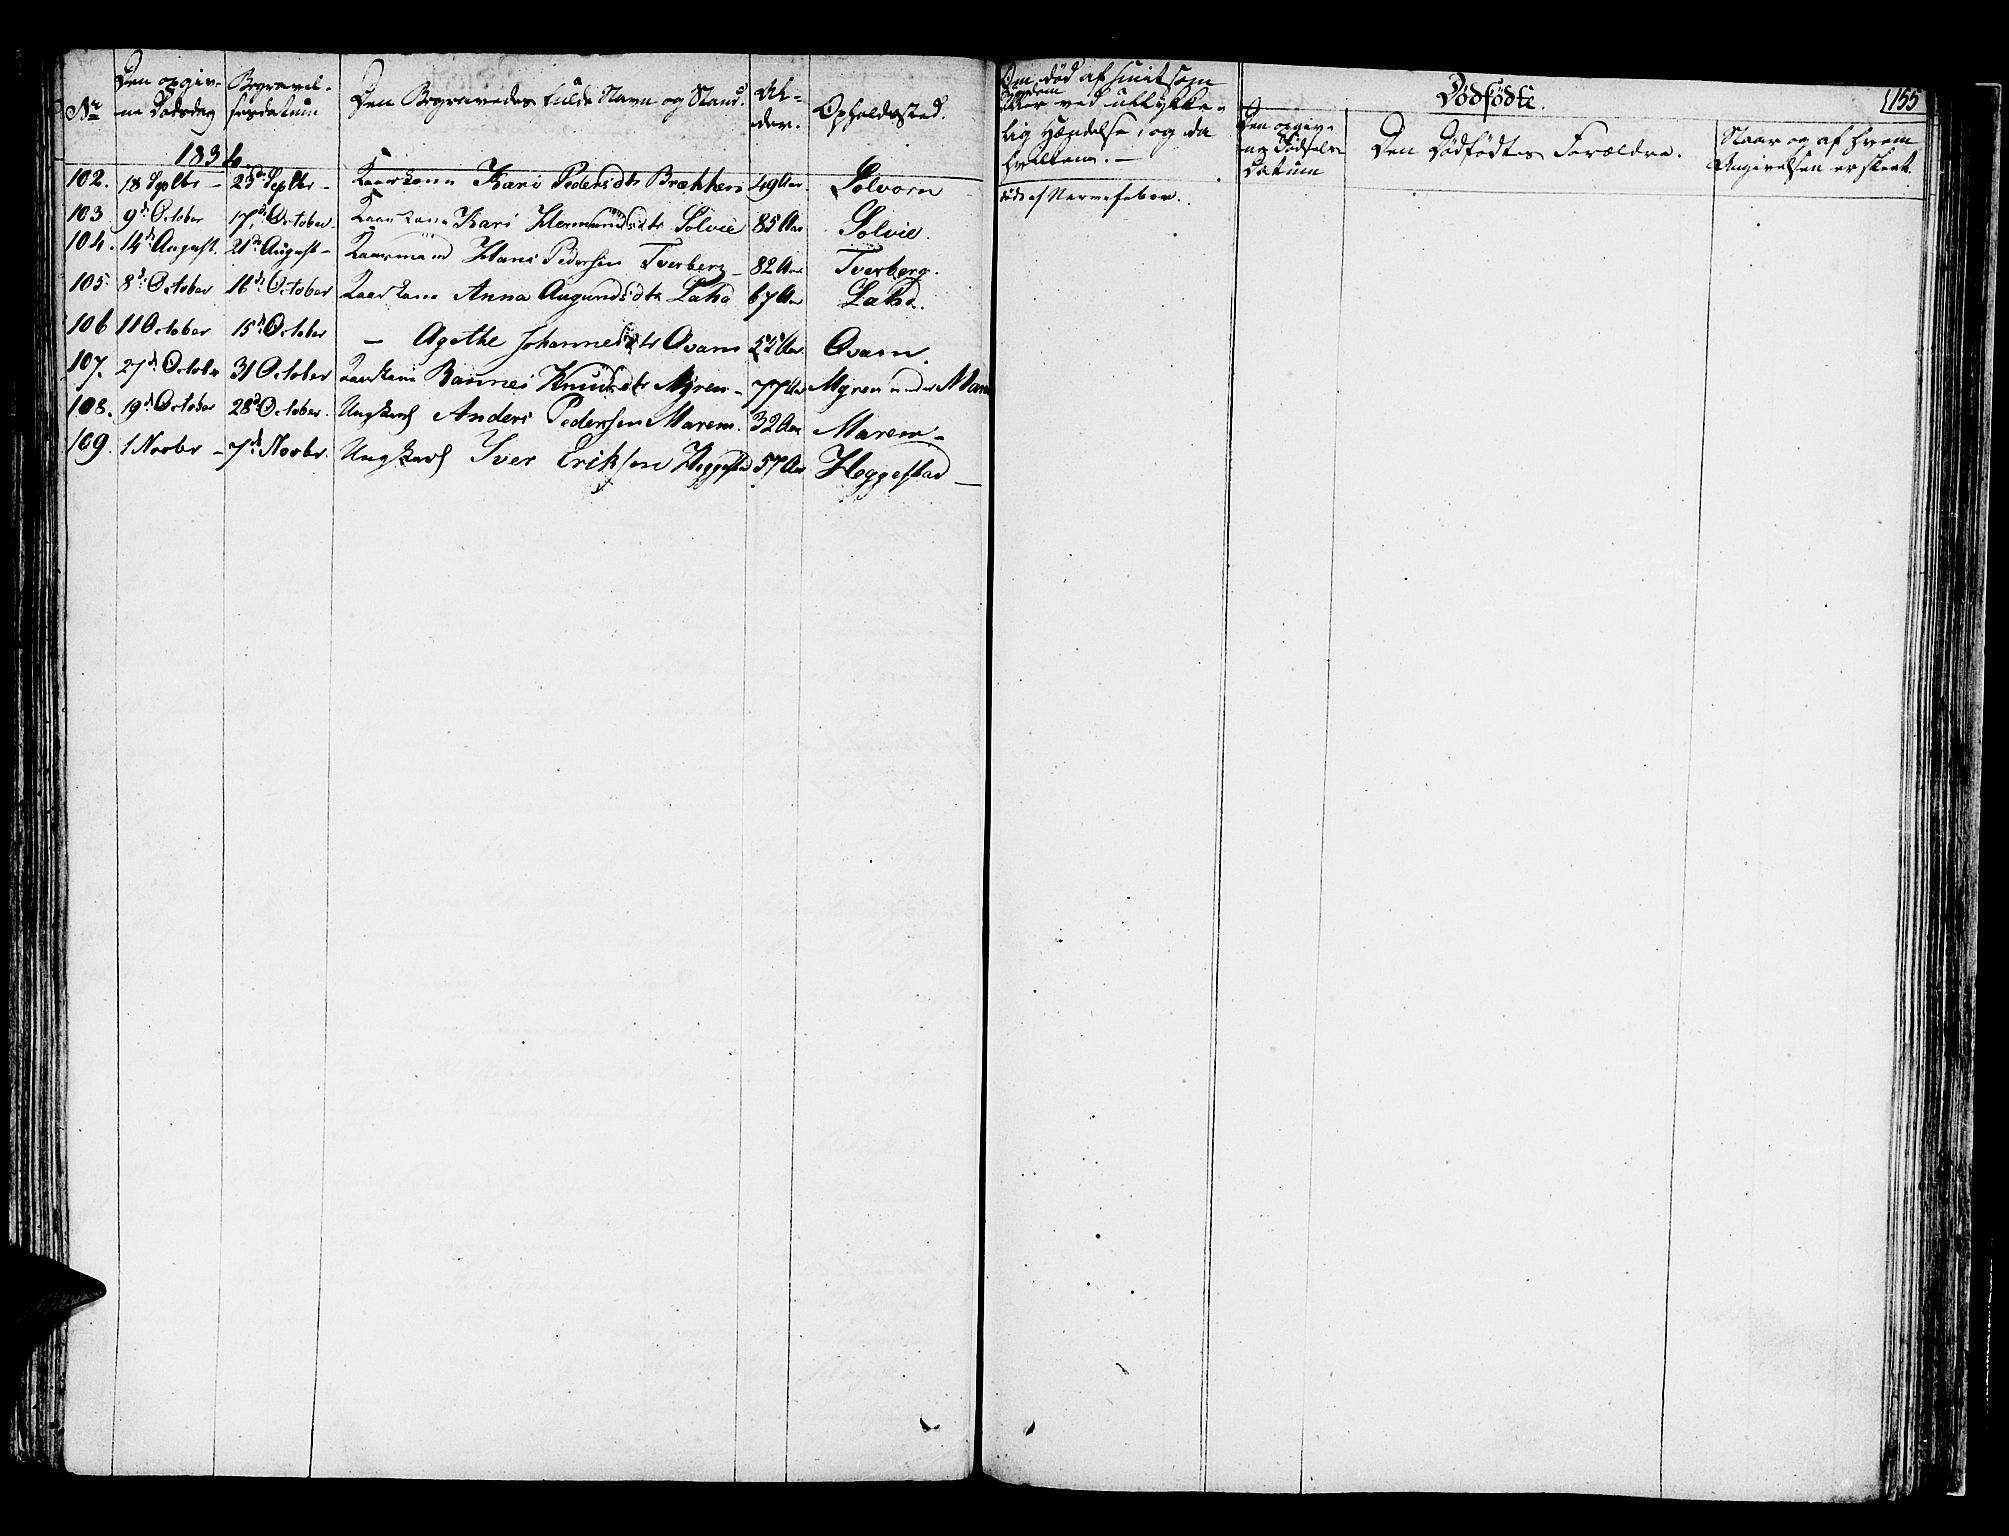 No
Den opgiv-
ne Dødsdag
Begravel-
sesdatum
Den Begravedes fulde Navn og Stand.
Al-
der.
Opholdssted.
Om død af smitsom
Sygdom
eller ved ulykke-
lig Hændelse, og da
hvilken.-
Dødfødte.
155
Den opgiv-
ne Fødsels-
Datum
Den Dødfødtes Forældre.
Naar og af hvem
Angivelsen er skeet.
1834.
102. 18 Septbr - 25de Septbr - Kaarkone Kari Pedersdtr Brækken 49 Aar Solvorn død af Nervefeber.
103. 9de October 17de October Kaarkone Kari Hermundsdtr Solvie 85 Aar Solvie.
104. 14de August. 21de August - Kaarmand Hans Pedersen Tverberg - 82 Aar Tverberg.
105. 8de October 16de October Kaarkone Anna Augundsdtr Lahd 67 Aar Lahd.
106 11 October 15de October - Agethe Johannesdtr Qvam Aar Qvam.
107. 27de Octobr 31 October Kaarkone Knudsdtr Myren - 77 Aar Myren under
108. 19de October 28de October. Ungkarl Anders Pedersen Marem. 32 Aar Marem -
109. 1 Novbr - 7de Novbr. Ungkarl Iver Eriksen Heggestad 57 Aar Heggestad -